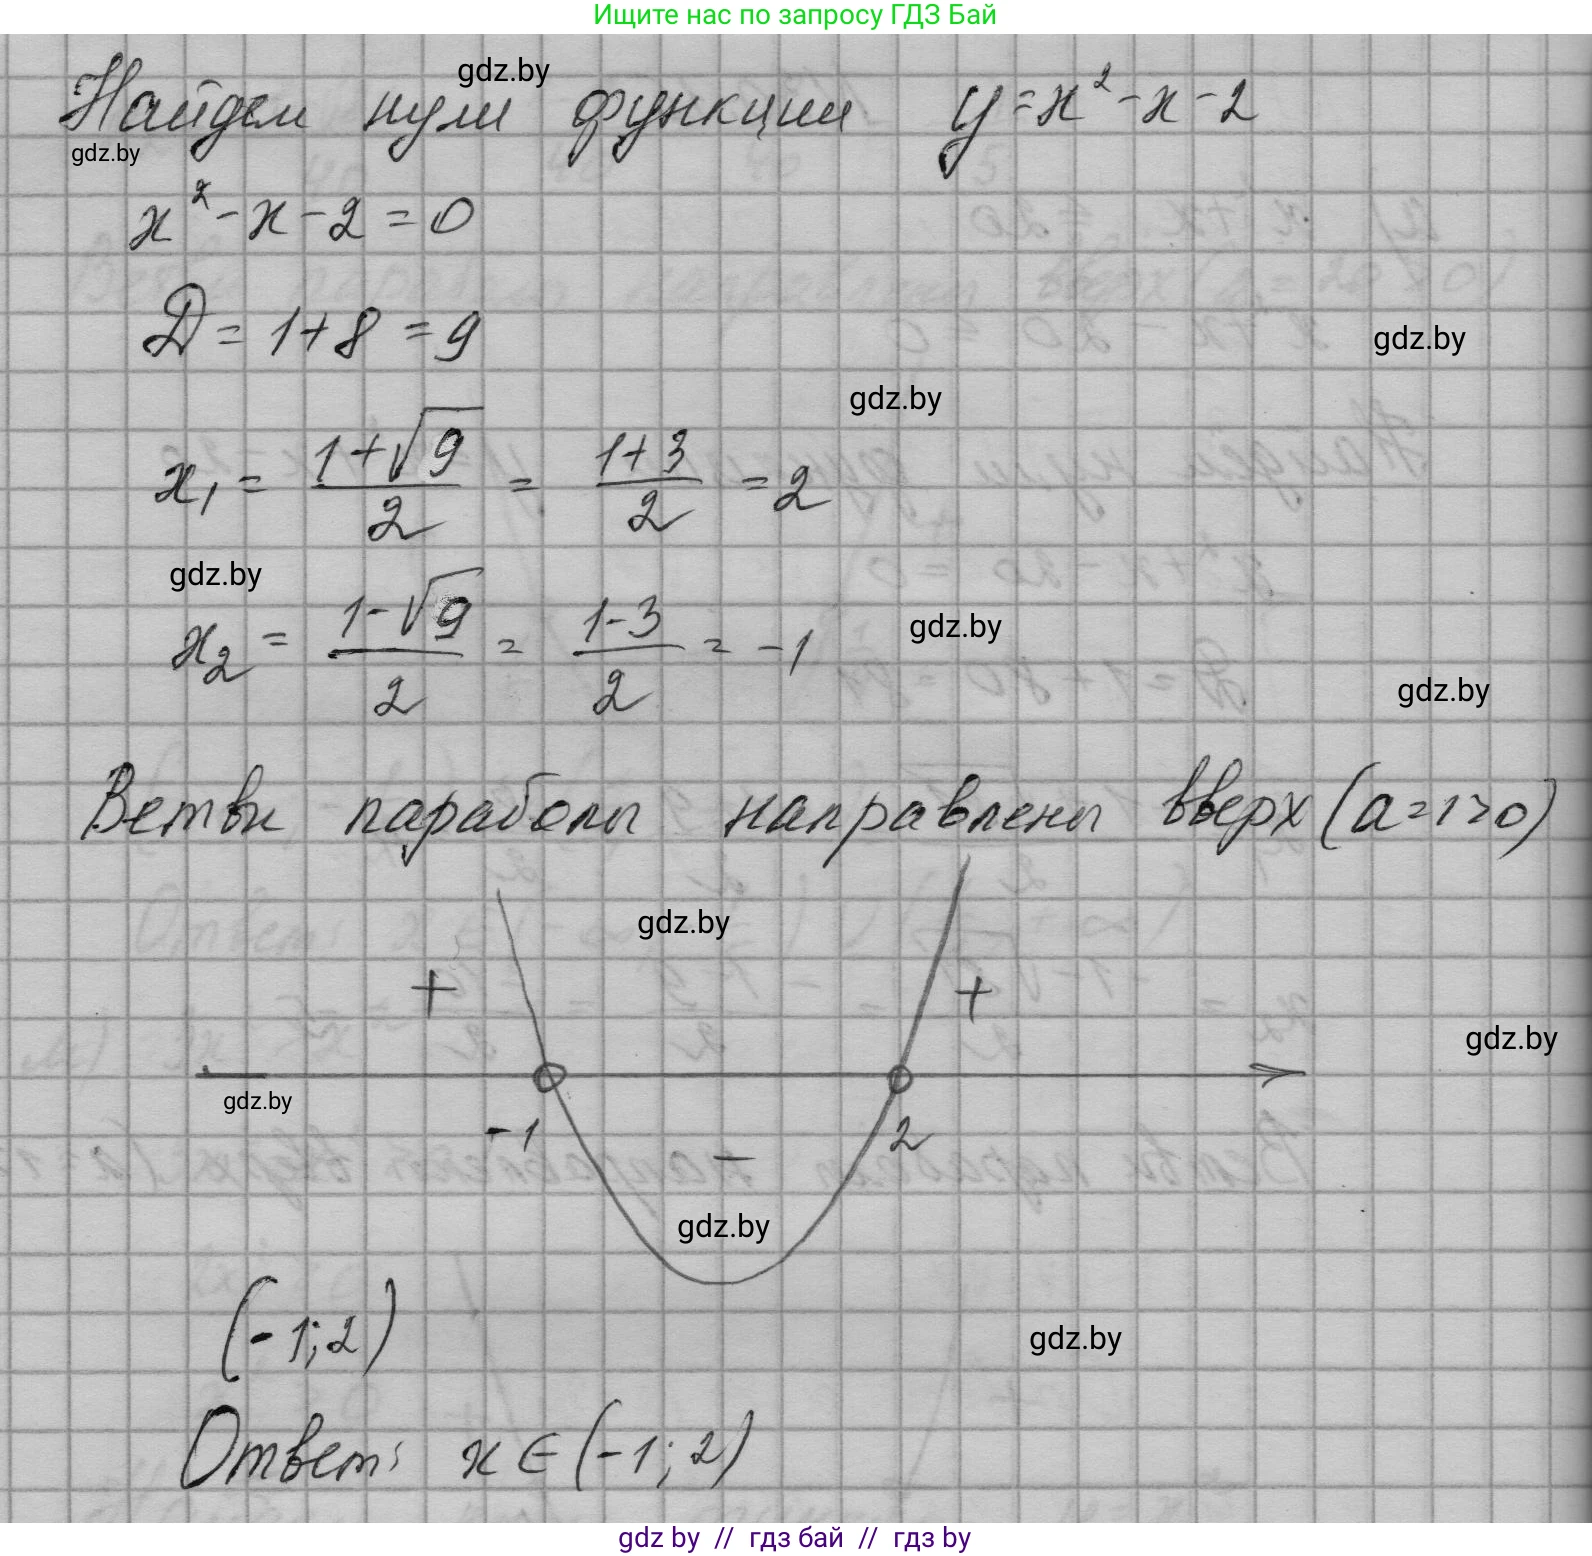 Ищите нас по запросу ГДЗ Бай
gdz.by
Найдем нули функции y=x²-x-2
gdz.by
x²-x-2=0
D=1+8=9
gdz.by
gdz.by
x₁ = (1+√9)/2 = (1+3)/2 = 2
gdz.by
x₂ = (1-√9)/2 = (1-3)/2 = -1
gdz.by
gdz.by
Ветви параболы направлены вверх (a=1>0)
gdz.by
+ +
gdz.by
gdz.by
-1 2
-
gdz.by
(-1;2)
gdz.by
Ответ: x∈(-1;2)
gdz by // гдз бай // гдз by